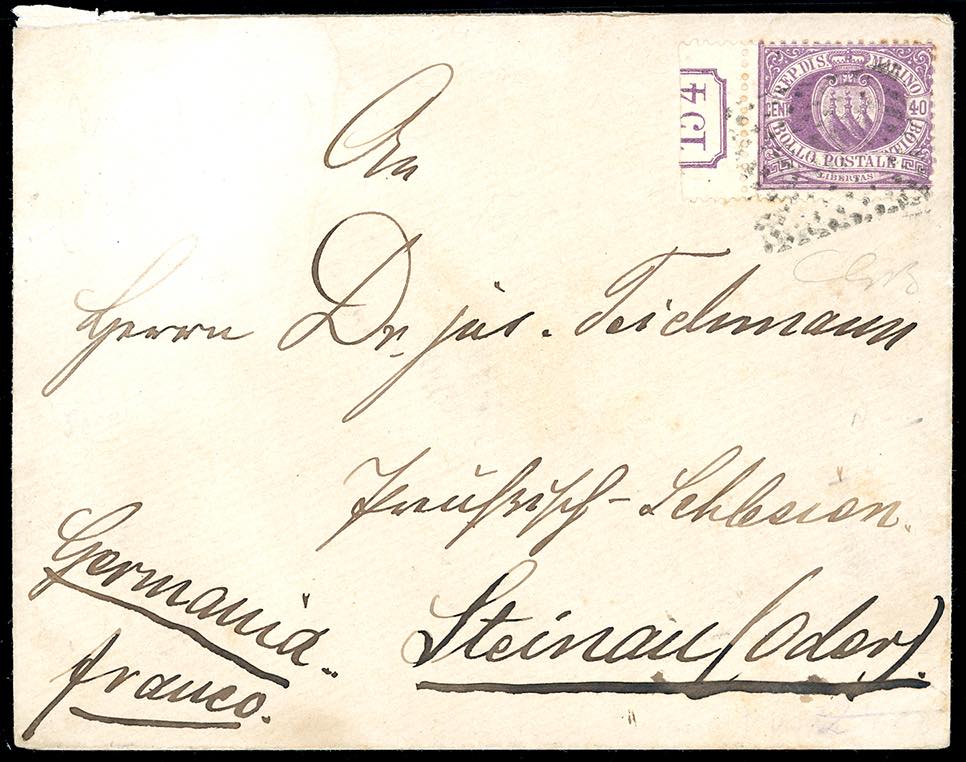 An
Herrn Dr. jur. Teichmann
Preußisch-Schlesien.
Steinau (Oder).
Germania.
franco.
154
REP. DI S. MARINO
CENT 40
BOLLO POSTALE
LIBERTAS